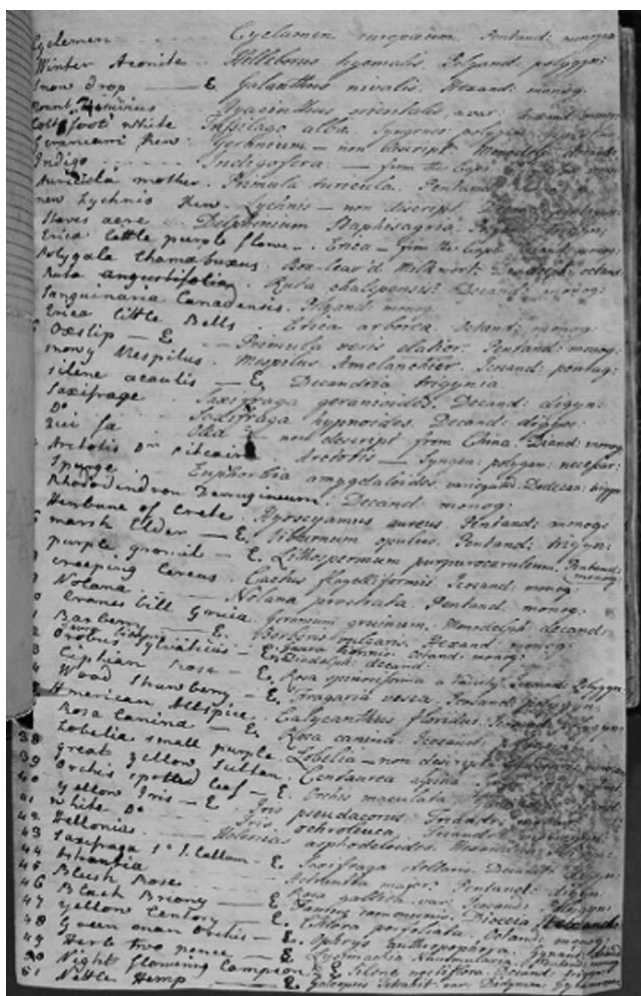 Cyclemen Cyclamen europæum. Pentand: monogyn
Winter Aconite Helleborus hyemalis. Polyand: polygyn:
Snow drop — E. Galanthus nivalis. Hexand: monog:
Mount Vesuvius Hyacinthus orientalis, a var: Hexand: monog:
Colts foot white Tussilago alba. Syngenes: polygam:
Geranium new. Geranium — non descript. Monadelph:
Indigo Indigofera — from the Cape.
Auricula mother. Primula auricula. Pentand:
new Lychnis New. Lychnis — non descript.
Staves acre Delphinium Staphisagria. trigyn:
Erica little purple flower. Erica — from the Cape. Octand: monog:
Polygala Chamæbuxus. Box-leav'd Milkwort. Diadelph: octand:
Ruta angustifolia Ruta chalepensis? Decand: monog:
Sanguinaria Canadensis. Polyand: monog:
Erica little Bells Erica arborea. Octand: monog:
Oxslip — E. Primula veris elatior. Pentand: monog:
Snowy Mespilus. Mespilus Amelanchier. Icosand: pentag:
Silene acaulis — E. Decandria trigynia
Saxifrage Saxifraga geranioides. Decand: digyn:
Do Saxifraga hypnoides. Decand: digyn:
Qui fa Olea — non descript from China. Diand: monog
Arctotis Dr Pitcairn Arctotis — Syngen: polygam: necessar:
Spurge Euphorbia amygdaloides variegated. Dodecan: trigyn
Rhododendron Ferrugineum. Decand: monog:
Henbane of Crete. Hyoscyamus aureus. Pentand: monog:
Marsh Elder — E. Viburnum opulus. Pentand: trigyn:
purple gromil — E. Lithospermum purpurocæruleum. Pentand: monog:
creeping Cereus. Cactus flagelliformis. Icosand: monog:
Nolana Nolana prostrata. Pentand: monog:
Cranes bill Gruia. Geranium gruinum. Monadelph: decand:
Barbery — E. Berberis vulgaris. Hexand: monog:
Gaura biennis. Octand: monog:
Orobus Sylvaticus — E. Diadelph: decand:
Ciphian Rose — E. Rosa spinosissima a variety. Icosand: Polygyn:
Wood Strawberry — E. Fragaria vesca. Icosand: polygyn:
American Allspice. Calycanthus floridus. Icosand: polygyn:
Rosa Canina — E. Rosa canina. Icosand: polygyn:
38 Lobelia small purple. Lobelia — non descript.
39 great Yellow Sultan. Centaurea
40 Orchis spotted leaf — E. Orchis maculata.
41 Yellow Iris — E. Iris pseudacorus. Triandr:
42 White Do Iris ochroleuca. Triand:
43 Hellonias Helonias asphodeloides. Hexandria
44 Saxifraga — E. Saxifraga stellaris. Decand: digyn:
45 Astrantia Astrantia major. Pentand: digyn:
46 Blush Rose Rosa gallica var: Icosand: Polygyn:
47 Black Briony — E. Tamus communis. Dioecia Hexand:
48 Yellow Centory — E. Chlora perfoliata. Octand: monog:
49 Green man Orchis — E. Ophrys anthropophora. Gynand:
50 Herb two pence — E. Lysimachia Nummularia. Pentand: monog
Night flowering Campion — E. Silene noctiflora. Decand: trigyn
51 Nettle Hemp — E. Galeopsis Tetrahit var. Didynam: